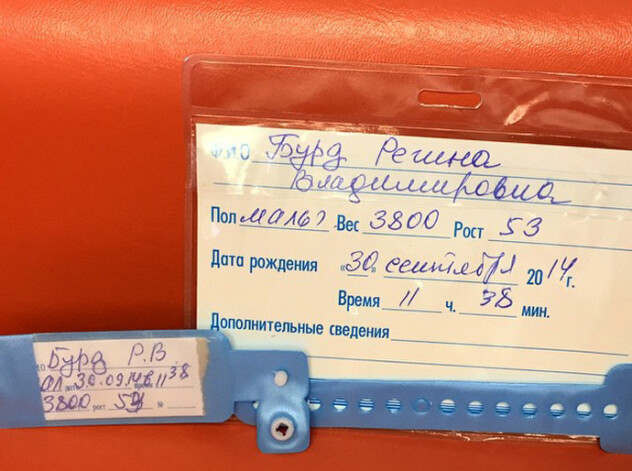 Ф.И.О Бурд Регина
Владимировна
Пол мальч Вес 3800 Рост 53
Дата рождения «30» сентября 2014г.
Время 11 ч. 38 мин.
Дополнительные сведения
Бурд Р.В
30.09.14 11 38
3800 рост 53 №